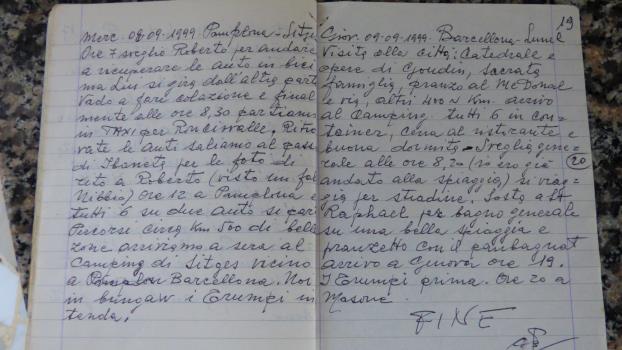 Merc. 08-09-1999. Pamplona - Sitges
Ore 7 sveglio Roberto per andare
a recuperare le auto in bici
ma lui si gira dall'altra parte
Vado a fare colazione e final
mente alle ore 8,30 partiamo
in TAXI per Roncisvalle. Ritro
vate le auto saliamo al passo
di Ibaneta per le foto di
rito a Roberto (visto un fal
Nibbio) Ore 12 a Pamplona e
tutti 6 su due auto si par
Percorsi circa Km 500 di belle
zone arriviamo a sera al
Camping di Sitges vicino
a Barcellona. Noi
in bungaw i Trumpi in
tenda.
19
Giov. 09-09-1999. Barcellona - Lunel
Visita alla città: Catedrale e
opere di Goudin, Sacrata
Famiglia, pranzo al McDonal
e via, altri 400 Km. arrivo
al Camping. tutti 6 in con=
tainer, Cena al ristorante e
buona dormita - Sveglia gene=
rale alle ore 8,20 (io ero già
20
andato alla spiaggia) si viag=
gia per stradine. Sosta a St
Raphael per bagno generale
su una bella spiaggia e
pranzetto con il panbagnat
arrivo a Genova ore 19.
I Trumpi prima. Ore 20 a
Masone.
FINE